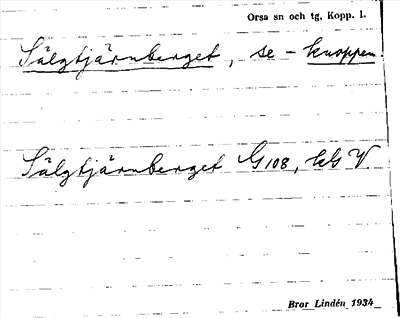 Orsa sn och tg, Kopp. l.
Sälgtjärnberget, se -knoppen.
Sälgtjärnberget G108, kG V
Bror Lindén 1934